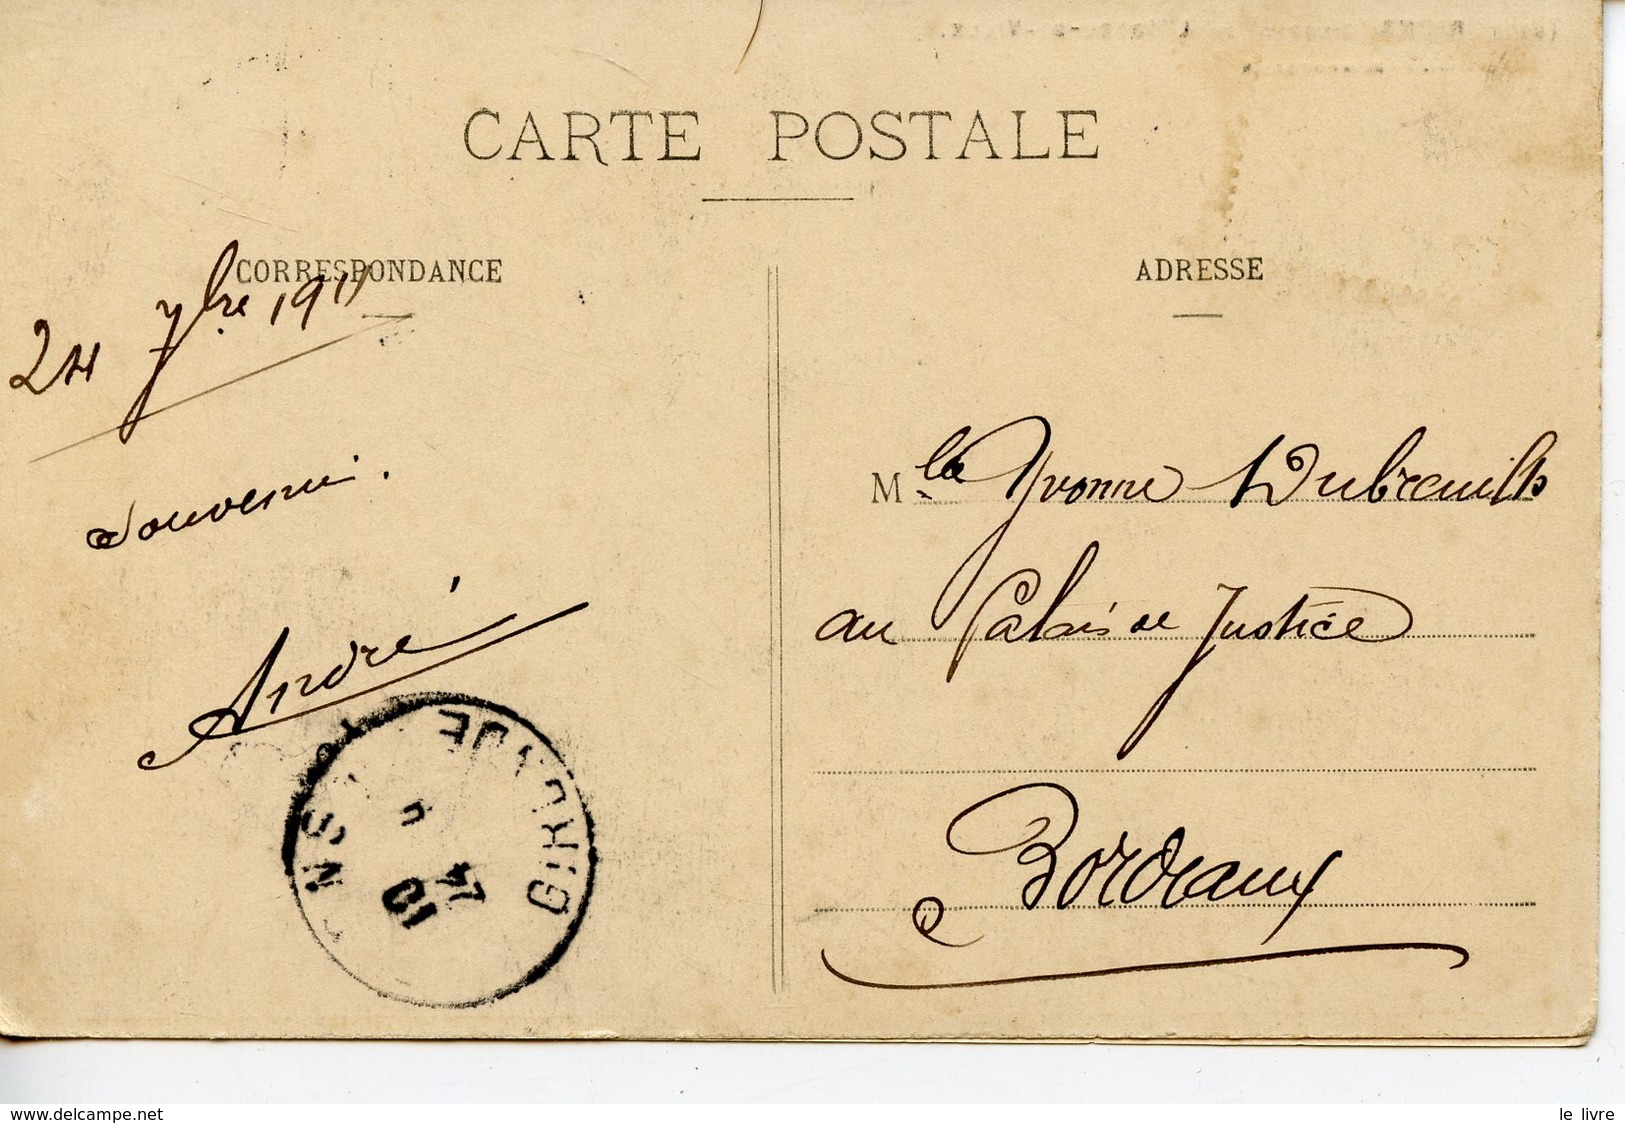 CARTE POSTALE
CORRESPONDANCE
ADRESSE
24 7bre 1911
Souvenir.
André
Mlle Yvonne Dubreuilh
au Palais de Justice
Bordeaux
GIRONDE
10
www.delcampe.net
le livre